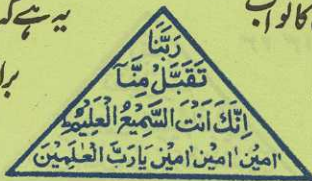 کا لواب
یہ ہے کہ
برا
رَبَّنَا
تَقَبَّلْ مِنَّا
اِنَّكَ اَنْتَ السَّمِيْعُ الْعَلِيْمُ
اٰمِيْن اٰمِيْن اٰمِيْن يَارَبَّ الْعٰلَمِيْنَ